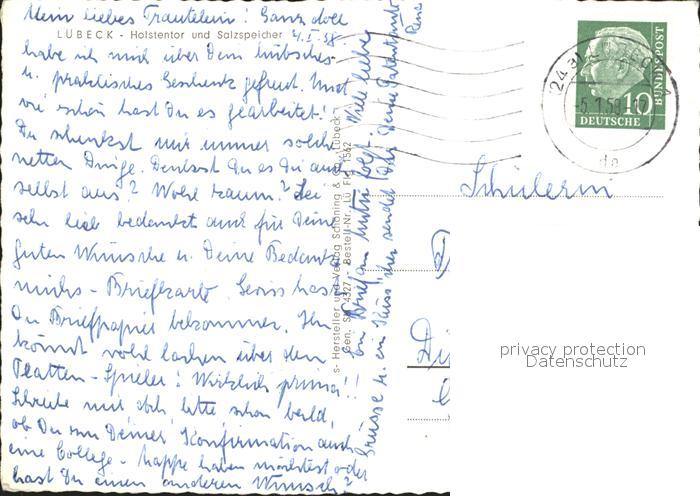 Mein liebes Trautelein! Ganz doll
LÜBECK - Holstentor und Salzspeicher 4.I.58
habe ich mich über dein hübsches
u. praktisches Geschenk gefreut. Und
wie schön hast Du es gearbeitet!
Du schenkst mir immer solche
netten Dinge. Denkst Du es Dir auch
selbst aus? Wohl kaum? Sei
sehr lieb bedankt auch für Deine
guten Wünsche u. Deine
- Briefkarte. Gewiss hast
Du Briefpapier bekommen. Ihr
könnt wohl lachen über den
Platten-Spieler! Wirklich prima!!
Schreibe mir doch bitte schon bald,
ob Du zu Deiner Konfirmation auch
eine College-Mappe haben möchtest oder
hast Du einen anderen Wunsch?
Ein Brief an Mutti folgt. Viele liebe
Grüsse u. ein Küss'chen sendet Dir Deine Patentante
Hersteller und Verlag Schöning & Lübeck
Bestell-Nr. Lü
Schülerin
D
Dü
(24a) LÜBECK
-5.1.58-
10
DEUTSCHE
BUNDESPOST
privacy protection
Datenschutz